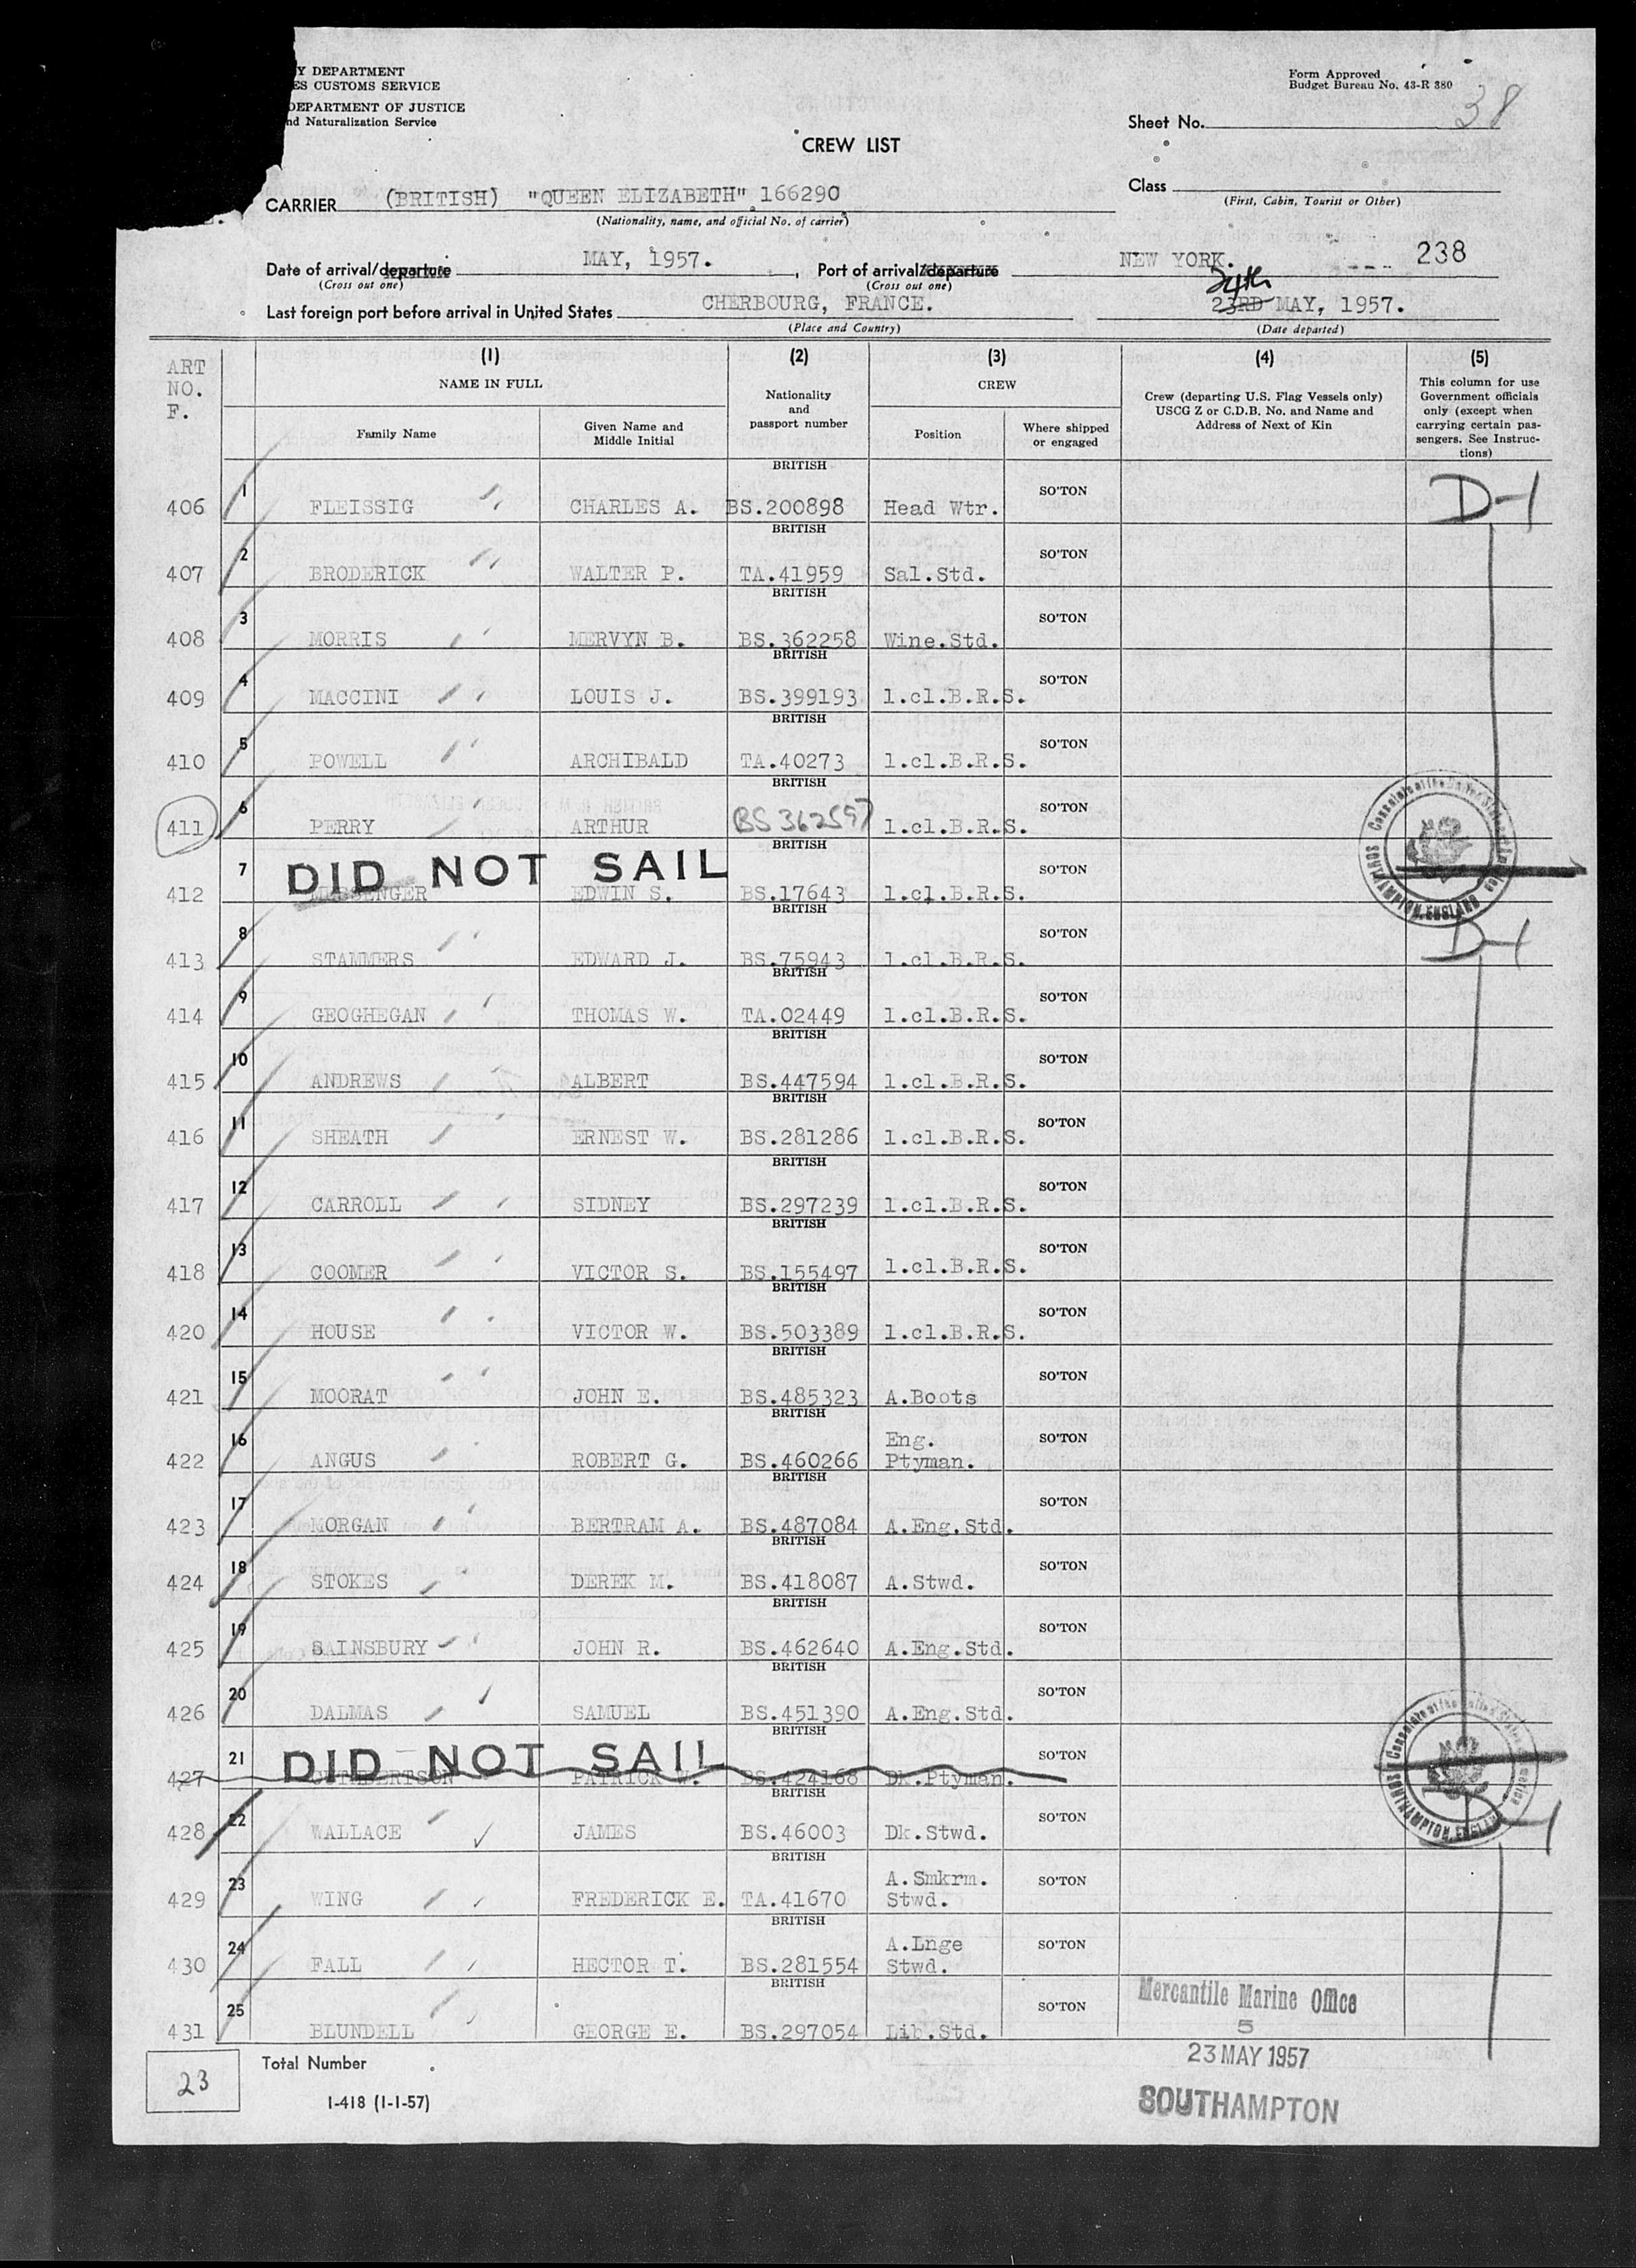 Y DEPARTMENT
ES CUSTOMS SERVICE
DEPARTMENT OF JUSTICE
nd Naturalization Service
Form Approved
Budget Bureau No. 43-R 380
Sheet No. 38
CREW LIST
Class
(First, Cabin, Tourist or Other)
CARRIER (BRITISH) "QUEEN ELIZABETH" 166290
(Nationality, name, and official No. of carrier)
Date of arrival/departure MAY, 1957. , Port of arrival/departure NEW YORK. 238
(Cross out one) (Cross out one)
24th
Last foreign port before arrival in United States CHERBOURG, FRANCE. 23RD MAY, 1957.
(Place and Country) (Date departed)
ART NO. F.
(1) (2) (3) (4) (5)
NAME IN FULL
Family Name
Given Name and Middle Initial
Nationality and passport number
CREW
Position
Where shipped or engaged
Crew (departing U.S. Flag Vessels only) USCG Z or C.D.B. No. and Name and Address of Next of Kin
This column for use Government officials only (except when carrying certain passengers. See Instructions)
406 1 FLEISSIG CHARLES A. BRITISH BS.200898 Head Wtr. SO'TON D-1
407 2 BRODERICK WALTER P. BRITISH TA.41959 Sal.Std. SO'TON
408 3 MORRIS MERVYN B. BRITISH BS.362258 Wine.Std. SO'TON
409 4 MACCINI LOUIS J. BRITISH BS.399193 1.cl.B.R.S. SO'TON
410 5 POWELL ARCHIBALD BRITISH TA.40273 1.cl.B.R.S. SO'TON
411 6 PERRY ARTHUR BRITISH BS 362597 1.cl.B.R.S. SO'TON
DID NOT SAIL
412 7 MESSENGER EDWIN S. BRITISH BS.17643 1.cl.B.R.S. SO'TON
413 8 STAMMERS EDWARD J. BRITISH BS.75943 1.cl.B.R.S. SO'TON D-1
414 9 GEOGHEGAN THOMAS W. BRITISH TA.02449 1.cl.B.R.S. SO'TON
415 10 ANDREWS ALBERT BRITISH BS.447594 1.cl.B.R.S. SO'TON
416 11 SHEATH ERNEST W. BRITISH BS.281286 1.cl.B.R.S. SO'TON
417 12 CARROLL SIDNEY BRITISH BS.297239 1.cl.B.R.S. SO'TON
418 13 COOMER VICTOR S. BRITISH BS.155497 1.cl.B.R.S. SO'TON
420 14 HOUSE VICTOR W. BRITISH BS.503389 1.cl.B.R.S. SO'TON
421 15 MOORAT JOHN E. BRITISH BS.485323 A.Boots SO'TON
422 16 ANGUS ROBERT G. BRITISH BS.460266 Eng. Ptyman. SO'TON
423 17 MORGAN BERTRAM A. BRITISH BS.487084 A.Eng.Std. SO'TON
424 18 STOKES DEREK M. BRITISH BS.418087 A.Stwd. SO'TON
425 19 SAINSBURY JOHN R. BRITISH BS.462640 A.Eng.Std. SO'TON
426 20 DALMAS SAMUEL BRITISH BS.451390 A.Eng.Std. SO'TON
DID NOT SAIL
427 21 CUTHBERTSON PATRICK W. BRITISH BS.424168 Dk.Ptyman. SO'TON
428 22 WALLACE JAMES BRITISH BS.46003 Dk.Stwd. SO'TON D-1
429 23 WING FREDERICK E. BRITISH TA.41670 A.Smkrm. Stwd. SO'TON
430 24 FALL HECTOR T. BRITISH BS.281554 A.Lnge Stwd. SO'TON
431 25 BLUNDELL GEORGE E. BRITISH BS.297054 Lib.Std. SO'TON
Mercantile Marine Office
5
23 MAY 1957
SOUTHAMPTON
23 Total Number
I-418 (1-1-57)